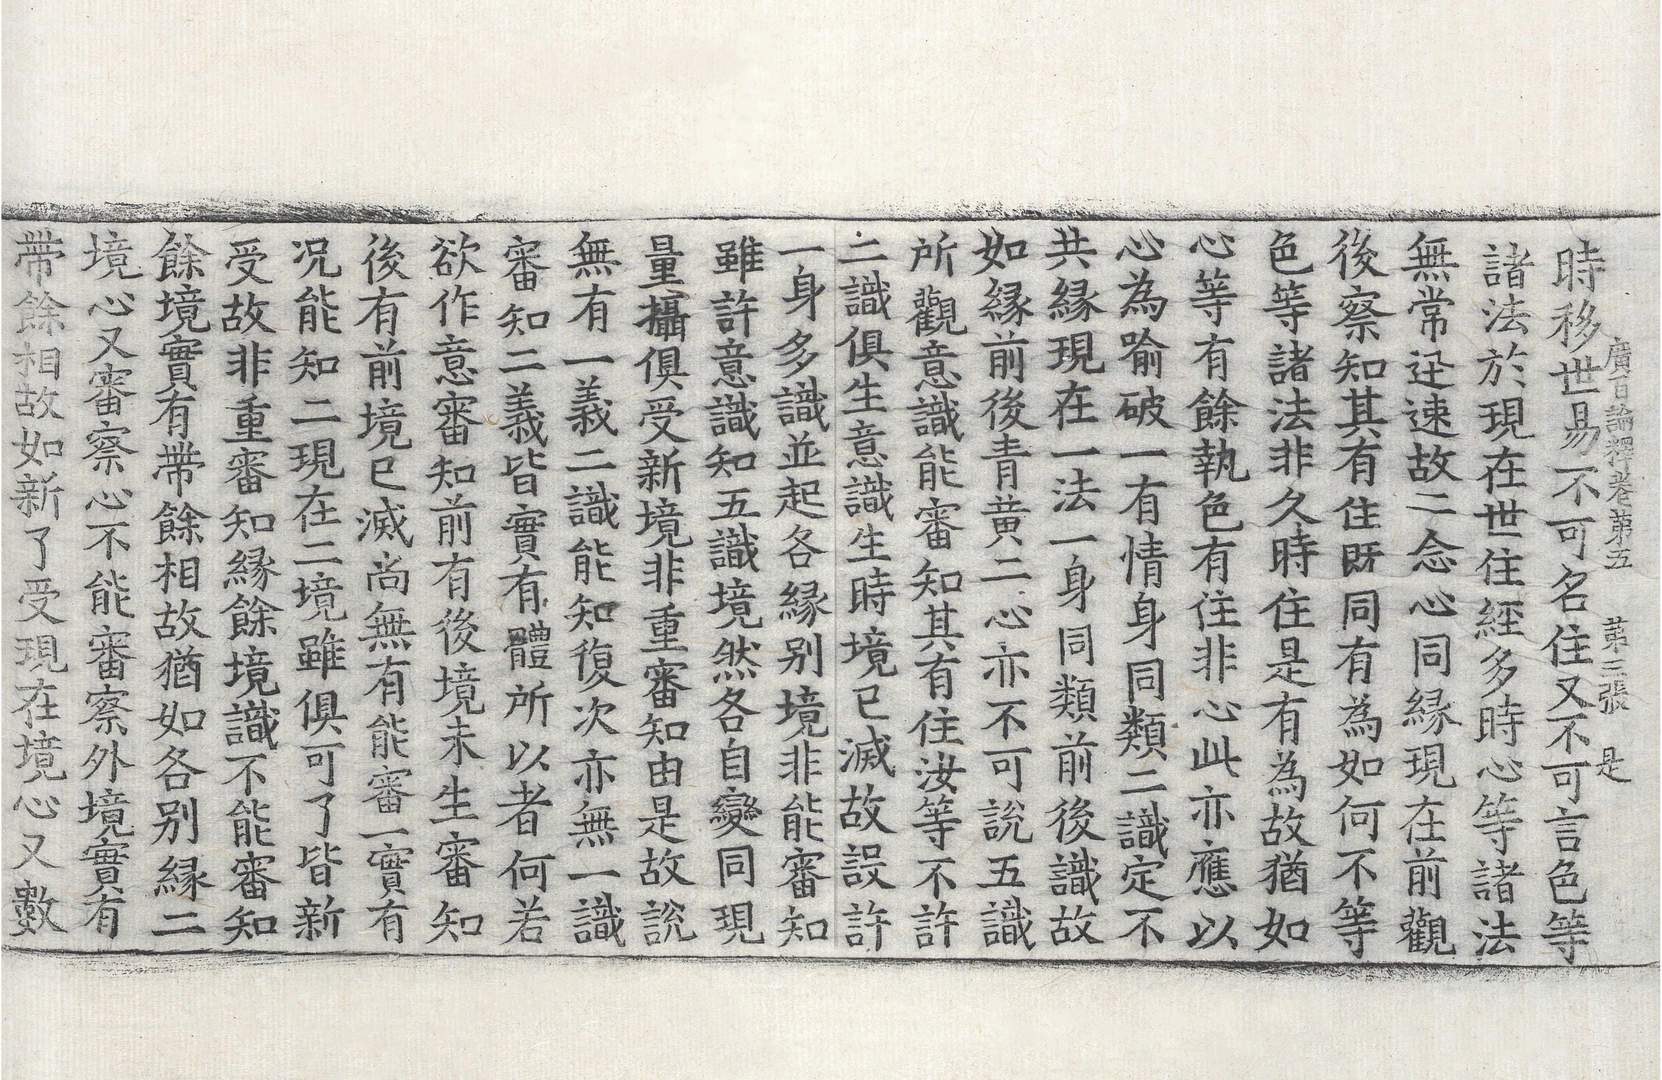 廣百論釋卷第五　第三張　是
時移世易不可名住又不可言色等
諸法於現在世住經多時心等諸法
無常迅速故二念心同縁現在前觀
後察知其有住既同有為如何不等
色等諸法非久時住是有為故猶如
心等有餘執色有住非心此亦應以
心為喻破一有情身同類二識定不
共縁現在一法一身同類前後識故
如縁前後青黄二心亦不可說五識
所觀意識能審知其有住汝等不許
二識俱生意識生時境已滅故設許
一身多識並起各縁别境非能審知
雖許意識知五識境然各自變同現
量攝俱受新境非重審知由是故說
無有一義二識能知復次亦無一識
審知二義皆實有體所以者何若
欲作意審知前有後境未生審知
後有前境已滅尚無有能審一實有
況能知二現在二境雖俱可了皆新
受故非重審知縁餘境識不能審知
餘境實有帶餘相故猶如各别縁二
境心又審察心不能審察外境實有
帶餘相故如新了受現在境心又數